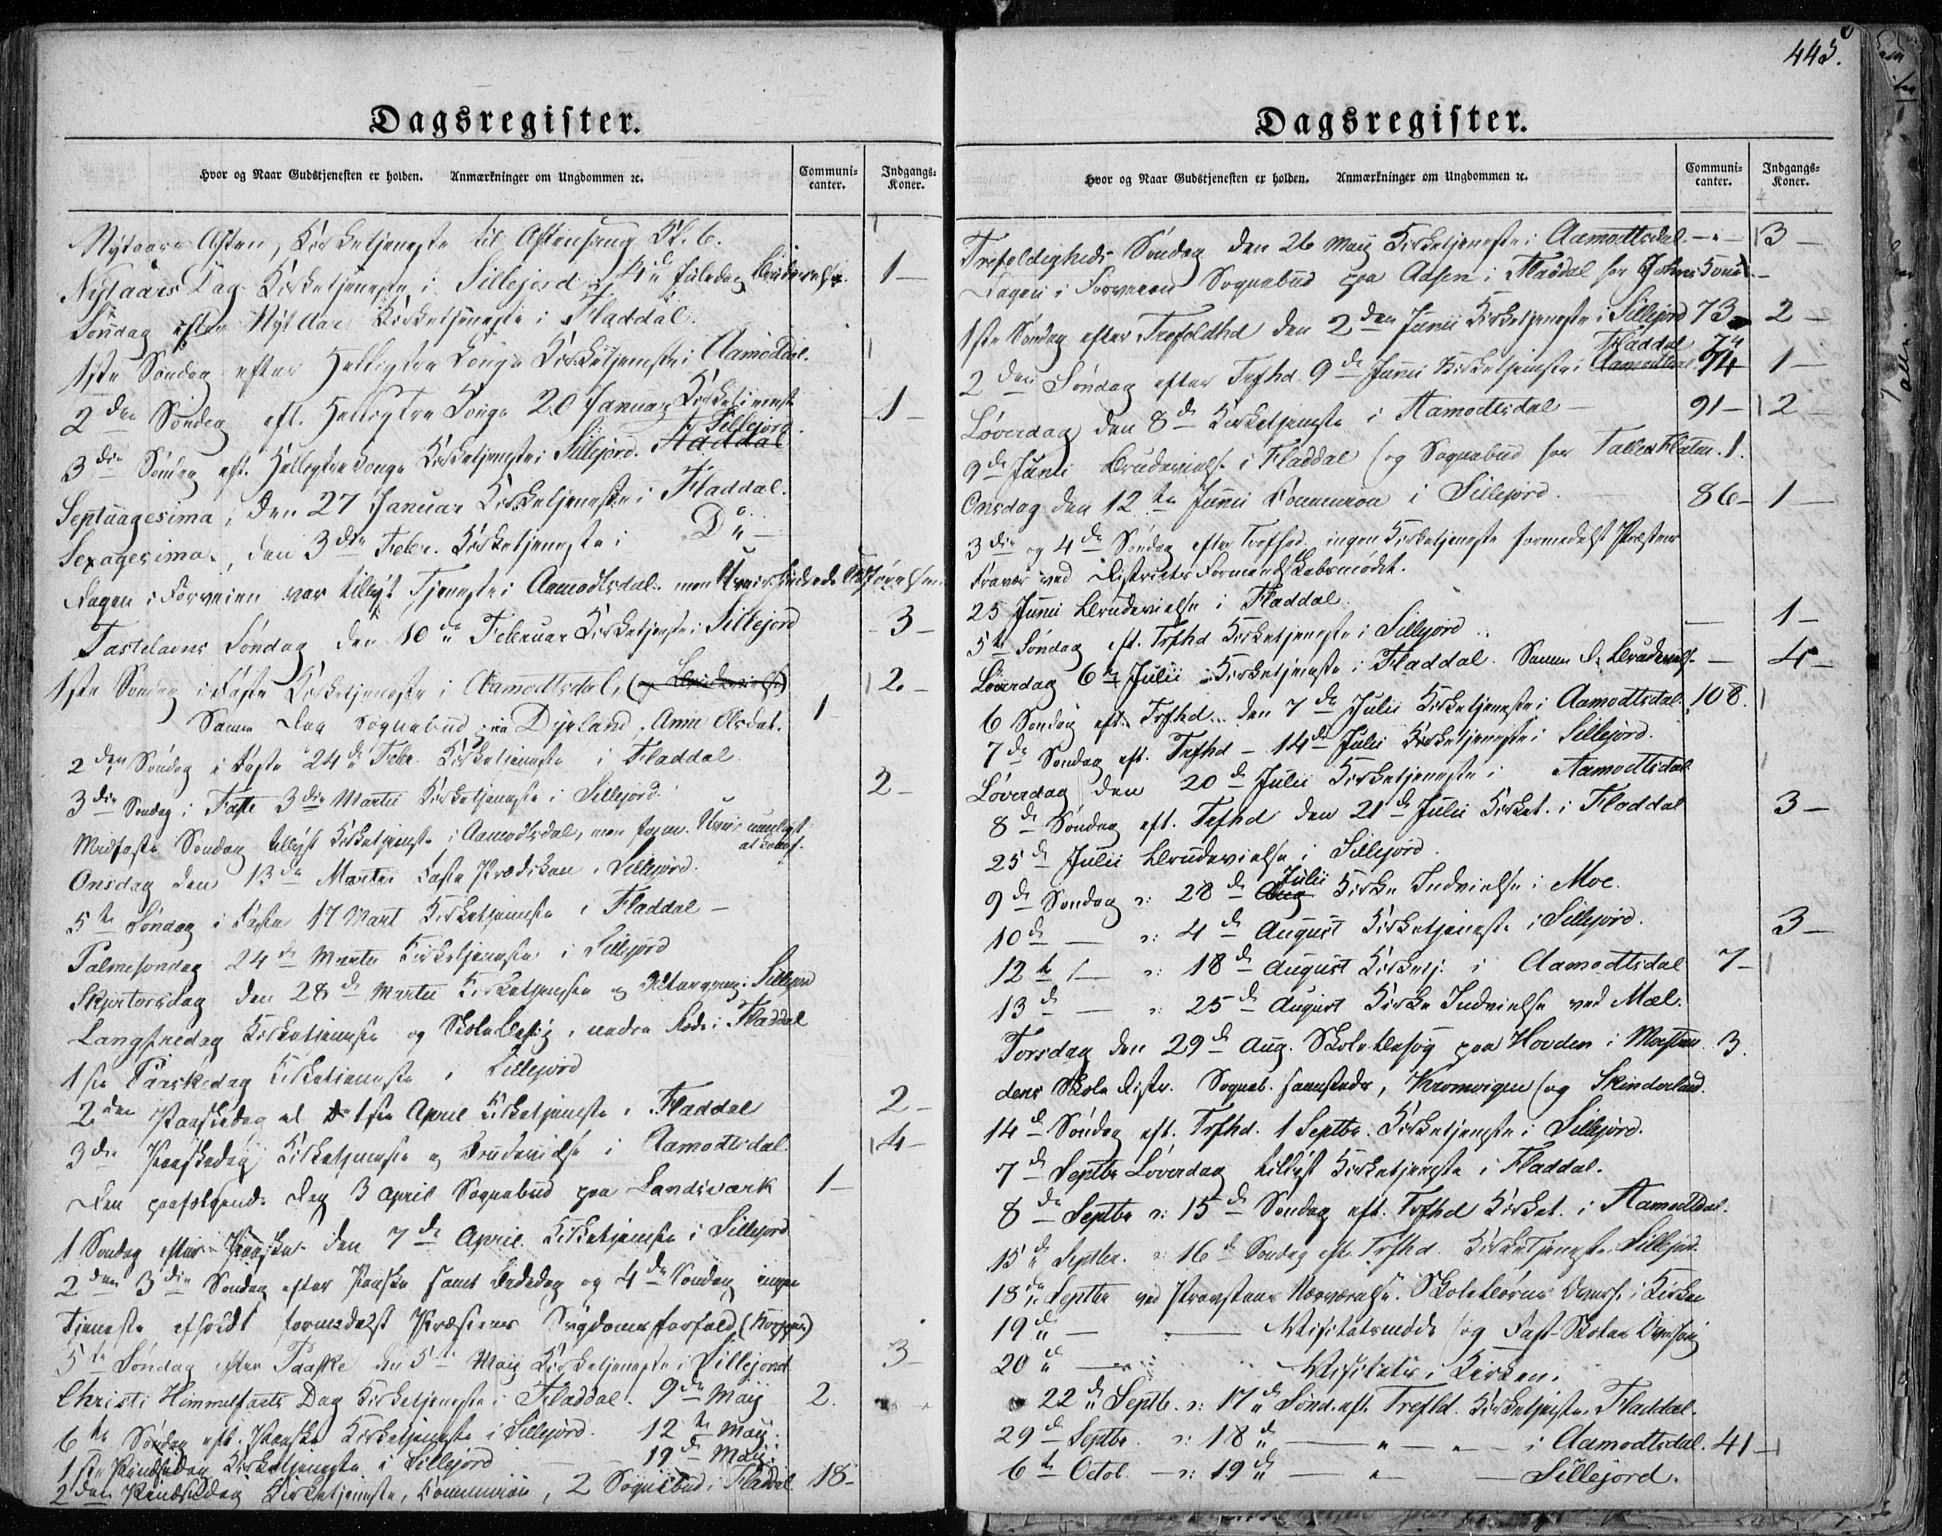 Dagsregister.
Hvor og Naar Gudstjenesten er holden. Anmærkninger om Ungdommen ꝛc. Communi-canter. Indgangs-Koner.
Nytaars Aften, Kirketjeneste til Aftensang Kl. 6.
Nytaars Dag Kirketjeneste i Sillejord 1 –
Søndag efter Nyt Aar Kirketjeneste i Fladdal.
1ste Søndag efter Helligtre Konge Kirketjeneste i Aamotsdal.
2den Søndag eft. Helligtre Konge 20 Januar Kirketjeneste i Sillejord. 1 –
3die Søndag eft. Helligtrekonge Kirketjeneste i Sillejord. Fladdal
Septuagesima, den 27 Januar Kirketjeneste i Fladdal.
Sexagesima, den 3die Febr. Kirketjeneste i Do –
Dagen i Forveien var tillyst Tjeneste i Aamodtsdal. men Uveir hindrede Udførelsen
Fastelavns Søndag den 10de Februar Kirketjeneste i Sillejord – 3 –
1ste Søndag i Faste Kirketjeneste i Aamodtsdal, (og Brudevielse) 2. –
Samme Dag Sognebud paa Dyrland. Anne Olsdat. 1
2den Søndag i Faste 24de Febr. Kirketjeneste i Fladdal
3die Søndag i Faste 3die Martii Kirketjeneste i Sillejord. 2 –
Midfaste Søndag tillyst Kirketjeneste i Aamodtsdal, men Uveir
Onsdag den 13de Martii Faste Prædiken i Sillejord.
5te Søndag i Faste 17 Mart Kirketjeneste i Fladdal –
Palmesøndag 24de Martii Kirketjeneste i Sillejord
Skjertorsdag den 28de Martii Kirketjeneste og Altergang i Sillejord
Langfredag Kirketjeneste og Skolebesøg i nedre Rode i Fladdal
1ste Paaskedag Kirketjeneste i Sillejord
2den Paaskedag el. 1ste April Kirketjeneste i Fladdal 2 –
3die Paaskedag Kirketjeneste og Brudevielse i Aamodtsdal. 4 –
Den paafølgende Dag 3 April Sognebud paa Landsværk 1 –
1 Søndag efter Paaske den 7de April Kirketjeneste i Sillejord
2den 3die Søndag efter Paaske samt Bededag og 4de Søndag ingen
Tjeneste afholdt formedelst Præstens Sygdomsforfald (Kopper)
5te Søndag efter Paaske den 5te Maij Kirketjeneste i Sillejord 3 –
Christi Himmelfarts Dag Kirketjeneste i Fladdal. 9de Maij 2.
6te Søndag eft. Paaske Kirketjeneste i Sillejord. 12te Maij.
1ste Pindsedag Kirketjeneste i Sillejord 19de Maij.
2den Pindsedag Kirketjeneste, Communion, 2 Sognebud i Fladdal 18 –
445.
Dagsregister.
Hvor og Naar Gudstjenesten er holden. Anmærkninger om Ungdommen ꝛc. Communi-canter. Indgangs-Koner.
Trefoldigheds Søndag den 26 Maij Kirketjeneste i Aamodtsdal. – " – 3 –
Dagen i Forveien Sognebud paa Aasen i Fladdal for
1ste Søndag efter Trefoldhd den 2den Junii Kirketjeneste i Sillejord 73 2 –
2den Søndag efter Trfhd. 9de Junii Kirketjeneste i Aamodtsdal Fladdal 74 1 –
Løverdag den 8de Kirketjeneste i Aamodtsdal – 91 – 2 –
9de Junii Brudevielse i Fladdal (og Sognebud for 1.
Onsdag den 12te Junii Communion i Sillejord. 86 – 1 –
3die og 4de Søndag efter Trefhd. ingen Kirketjeneste formedelst Præstens
Fravær ved Districts Formandskabsmødet.
25 Junii Brudevielse i Fladdal.
5te Søndag eft. Trfhd Kirketjeneste i Sillejord – 1 –
Løverdag 6te Julii Kirketjeneste i Fladdal. Samme D. Brudevielse – 4 –
6 Søndag eft. Trfhd. den 7de Julii Kirketjeneste i Aamodtsdal. 108.
7de Søndag eft. Trfhd – 14de Julii Kirketjeneste i Sillejord.
Løverdag den 20de Julii Kirketjeneste i Aamodtsdal
8de Søndag eft. Trfhd den 21de Julii Kirket. i Fladdal 3 –
25de Julii Brudevielse i Sillejord.
9de Søndag ɔ: 28de Aug Julii Kirke Indvielse i Moe.
10de — ɔ: 4de August Kirketjeneste i Sillejord. 3 –
12te — ɔ: 18de August Kirketj. i Aamodtsdal 7 –
13de — ɔ: 25de August Kirke Indvielse ved Mæl.
Torsdag den 29de Aug. Skolebesøg paa Hovden i 3.
dens Skole Distr. Sogneb. sammesteds, (og
14de Søndag eft. Trfhd. 1 Septbr. Kirketjeneste i Sillejord.
7de Septbr Løverdag tillyst Kirketjeneste i Fladdal.
8de Septbr ɔ: 15de Søndag eft. Trfhd Kirket. i Aamodtsdal.
15de Septbr. ɔ: 16de Søndag eft. Trfhd. Kirketjeneste Sillejord.
18de Septbr ved Provstens Nærværelse. Skolebørns i Kirken
19de — Visitatsmøde (og Fast-Skolen
20de — Visitats i Kirken.
22de Septb. ɔ: 17de Sønd. eft. Trefld. Kirketjeneste Fladdal.
29de Septbr. ɔ: 18de — " — " — i Aamodtsdal. 41 –
6te Octob. – ɔ: 19de — " — Sillejord.